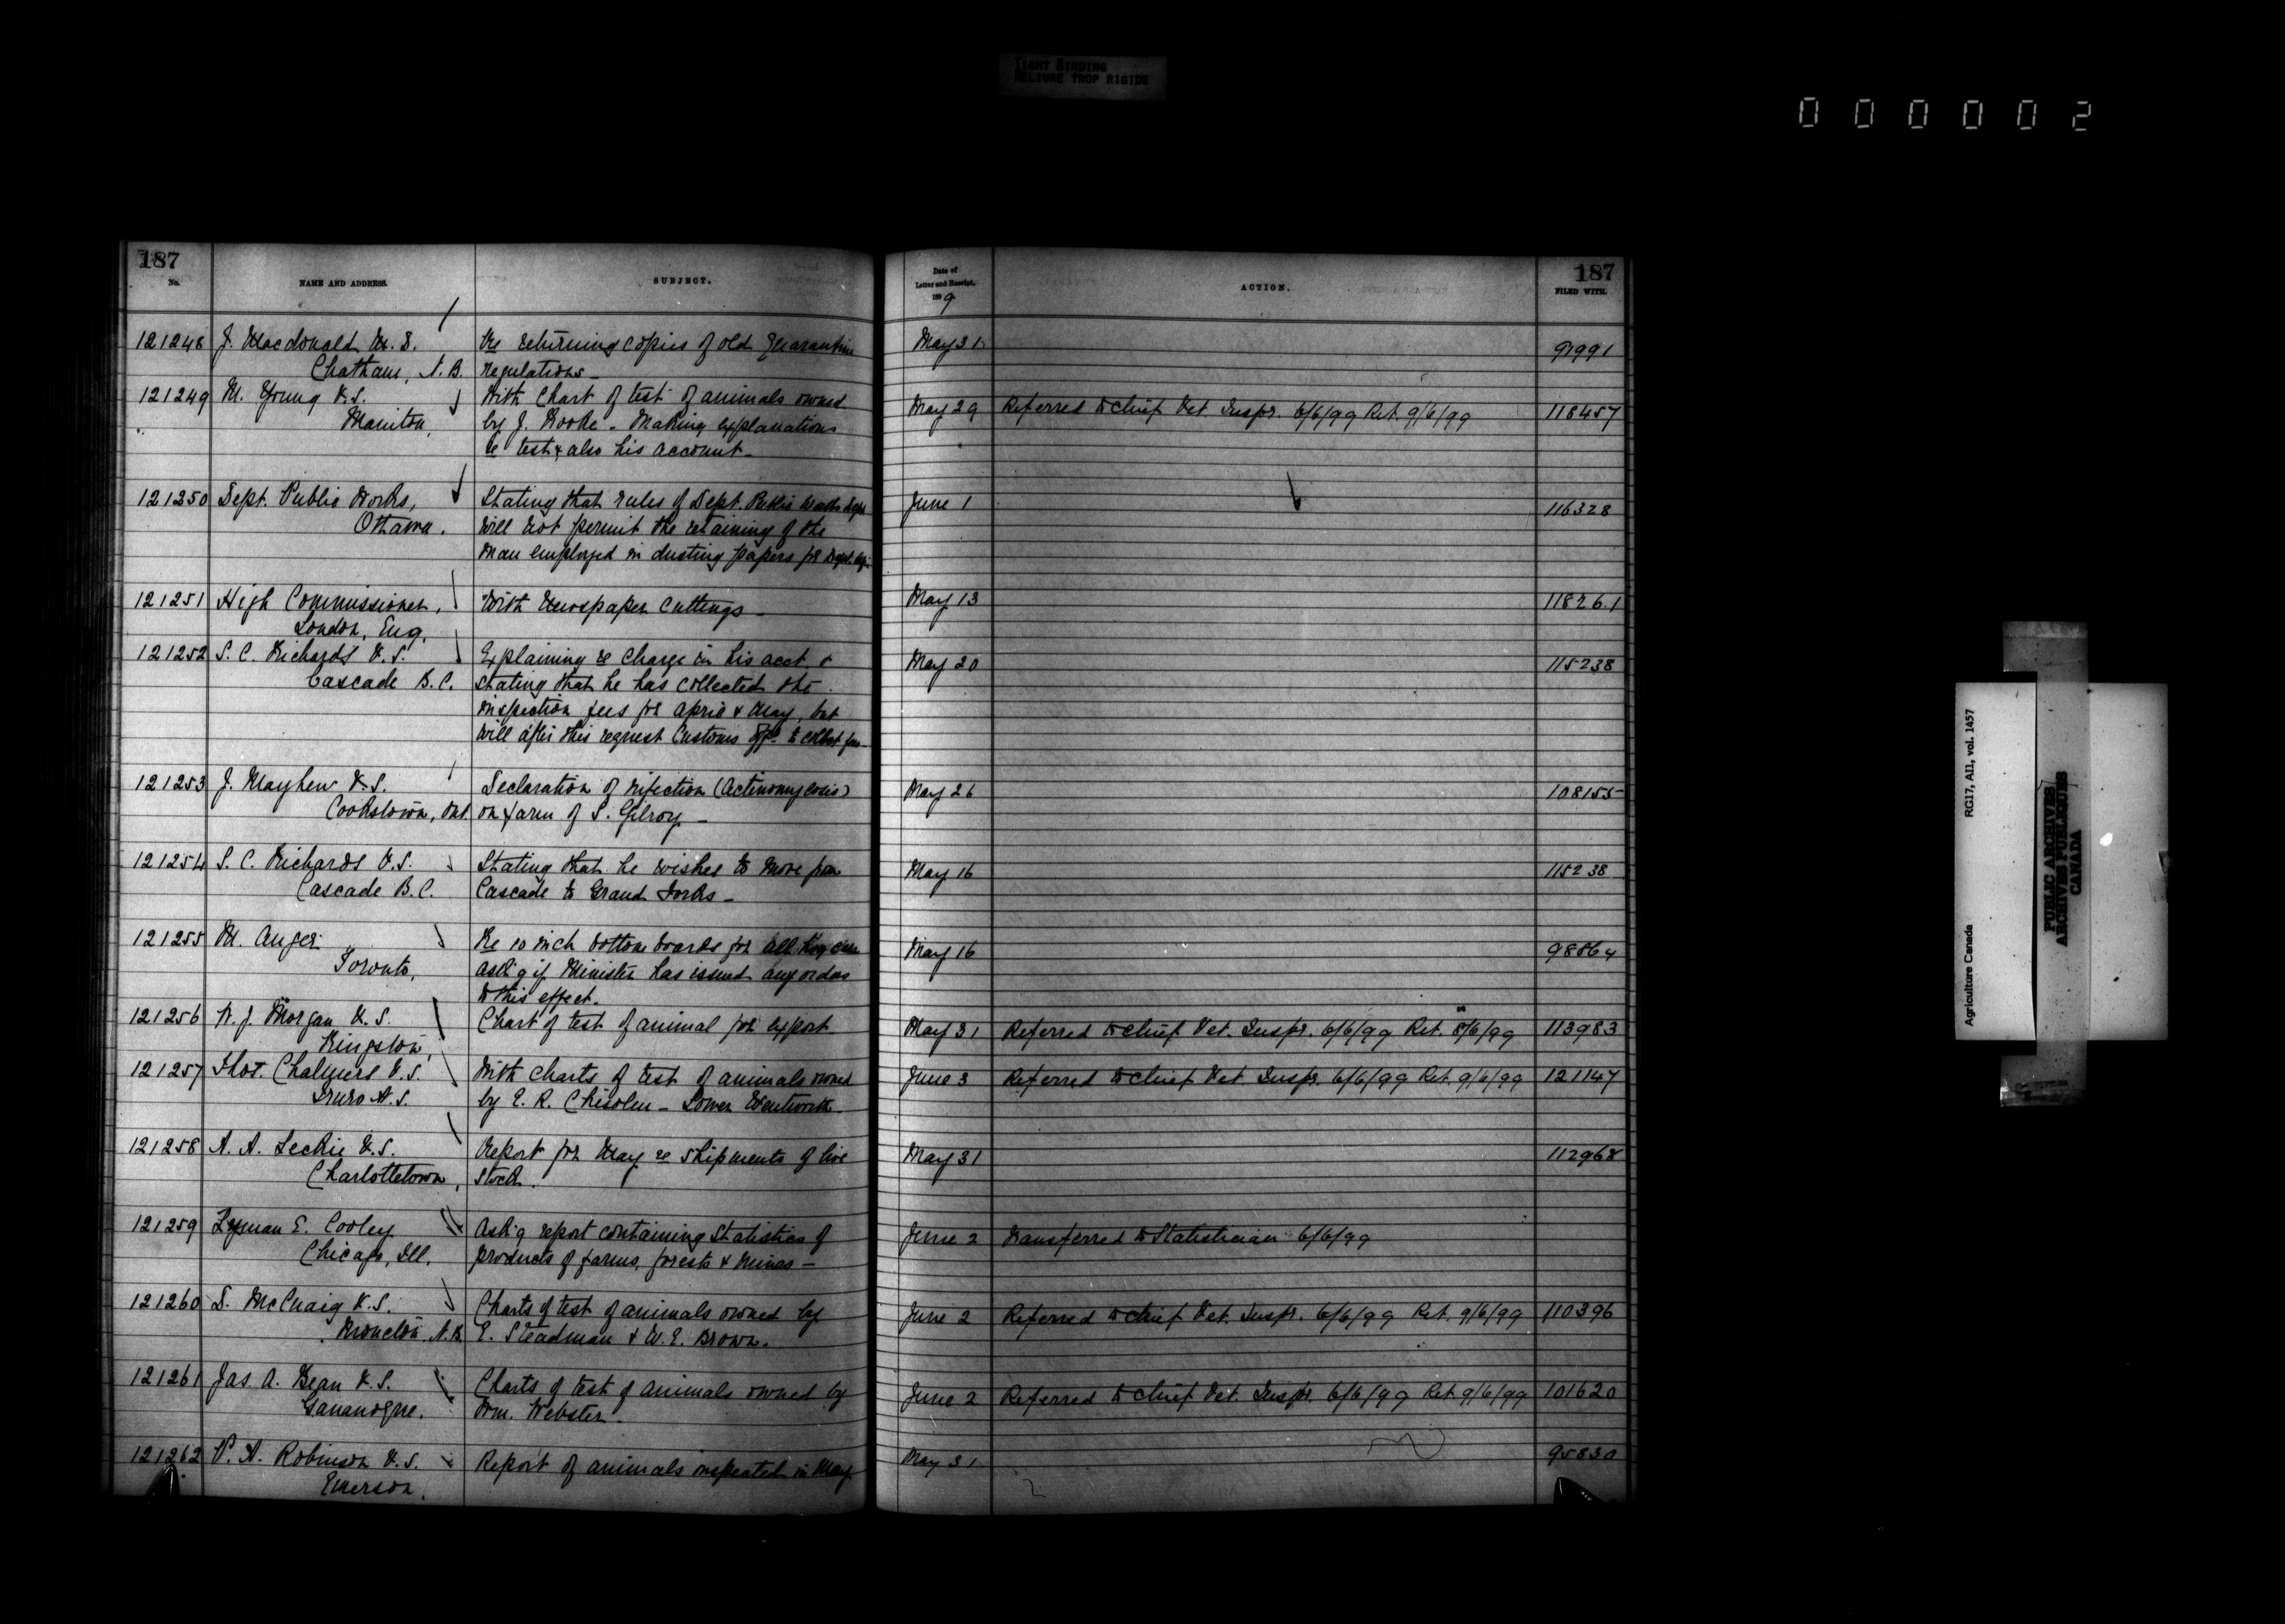 TIGHT BINDING
RELIURE TROP RIGIDE
000002
187
No.
NAME AND ADDRESS.
SUBJECT.
Date of
Letter and Receipt,
1899
ACTION.
187
FILED WITH.
121248 J. Macdonald M.D. Re returning copies of old Quarantine May 31 91991
Chatham, N.B. regulations_
121249 M. Young V.S. With Chart of test of animals owned May 29 Referred to Chief Vet. Inspr. 6/6/99 Ret. 9/6/99 118457
Manitou, by J. - Making explanations
re test & also his account_
121250 Dept. Public Works, Stating that rules of Dept. Public Works June 1 116328
Ottawa. will not permit the retaining of the
man employed in dusting papers for Dept.
121251 High Commissioner, With Newspaper Cuttings_ May 13 118261
London, Eng.
121252 S. C. Richards V.S. Explaining re Charge in his acct & May 20 115238
Cascade B.C. stating that he has collected the
inspection fees for April & May, but
will after this request Customs to collect fees_
121253 J. Mayhew V.S. Declaration of infection (Actinomycosis) May 26 108155
Cookstown, Ont. on farm of S. Gilroy_
121254 S. C. Richards V.S. Stating that he wishes to move from May 16 115238
Cascade B.C. Cascade to Grand Forks_
121255 M. Auger Re 10 inch bottom boards for all May 16 98864
Toronto, ask'g if Minister has issued any orders
to this effect.
121256 W. J. Morgan V.S. Chart of test of animal for export May 31 Referred to Chief Vet. Inspr. 6/6/99 Ret. 8/6/99 113983
Kingston,
121257 Thos. Chalmers V.S. With charts of test of animals owned June 3 Referred to Chief Vet. Inspr. 6/6/99 Ret. 9/6/99 121147
Truro N.S. by E. R. Chisolm_ Lower Wentworth_
121258 A. A. Leckie V.S. Report for May re shipments of live May 31 112968
Charlottetown, stock.
121259 Lyman E. Cooley Ask'g report containing Statistics of June 2 Transferred to Statistician 6/6/99
Chicago, Ill. products of farms, forests & Mines_
121260 D. McCuaig V.S. Charts of test of animals owned by June 2 Referred to Chief Vet. Inspr. 6/6/99 Ret. 9/6/99 110396
Moncton, N.B. E. Steadman & W. E. Brown.
121261 Jas. A. Bean V.S. Charts of test of animals owned by June 2 Referred to Chief Vet. Inspr. 6/6/99 Ret. 9/6/99 101620
Gananoque. Wm. Webster_
121262 P. A. Robinson V.S. Report of animals inspected in May May 31 95830
Emerson.
Agriculture Canada RG17, AII, vol. 1457
PUBLIC ARCHIVES
ARCHIVES PUBLIQUES
CANADA